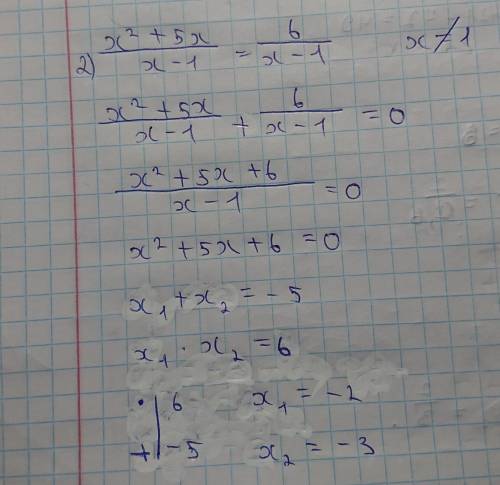 2) (x² + 5x)/(x - 1) = 6/(x - 1) x ≠ 1
(x² + 5x)/(x - 1) + 6/(x - 1) = 0
(x² + 5x + 6)/(x - 1) = 0
x² + 5x + 6 = 0
x₁ + x₂ = - 5
x₁ · x₂ = 6
· | 6 x₁ = -2
+ | -5 x₂ = -3